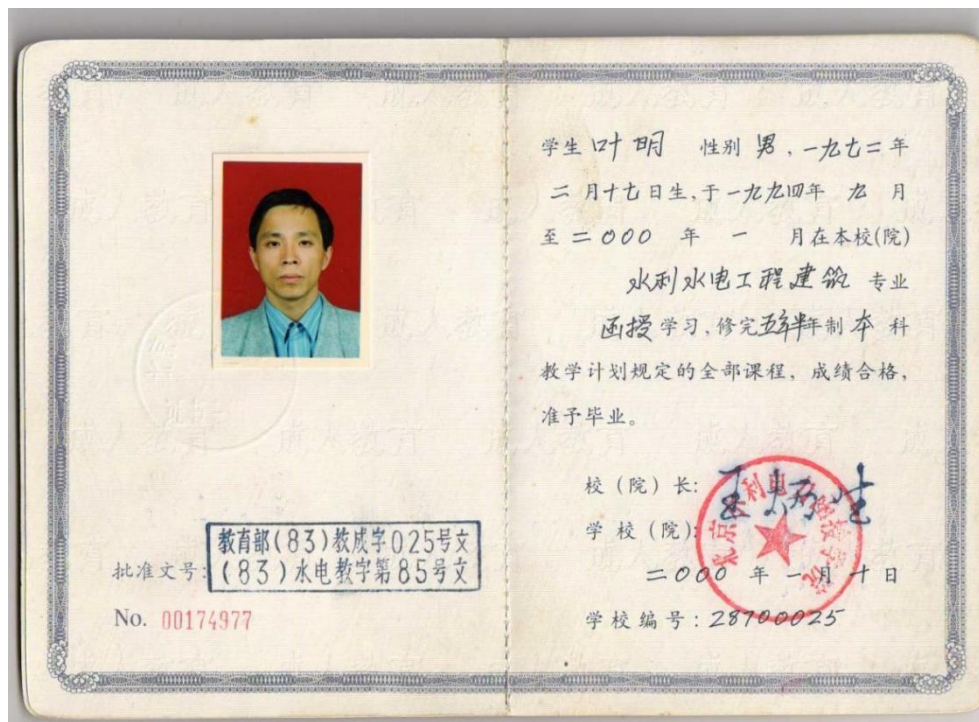 教育部(83)教成字025号文
批准文号:(83)水电教字第85号文
No. 00174977
学生 叶明 性别 男,一九七二年
二月十七日生,于一九九四年 九 月
至二000 年 一 月在本校(院)
水利水电工程建筑 专业
函授学习,修完五年半年制 本 科
教学计划规定的全部课程,成绩合格,
准予毕业。
校(院)长:
学校(院):
二000 年 一月 十日
学校编号:28700025
成人教育